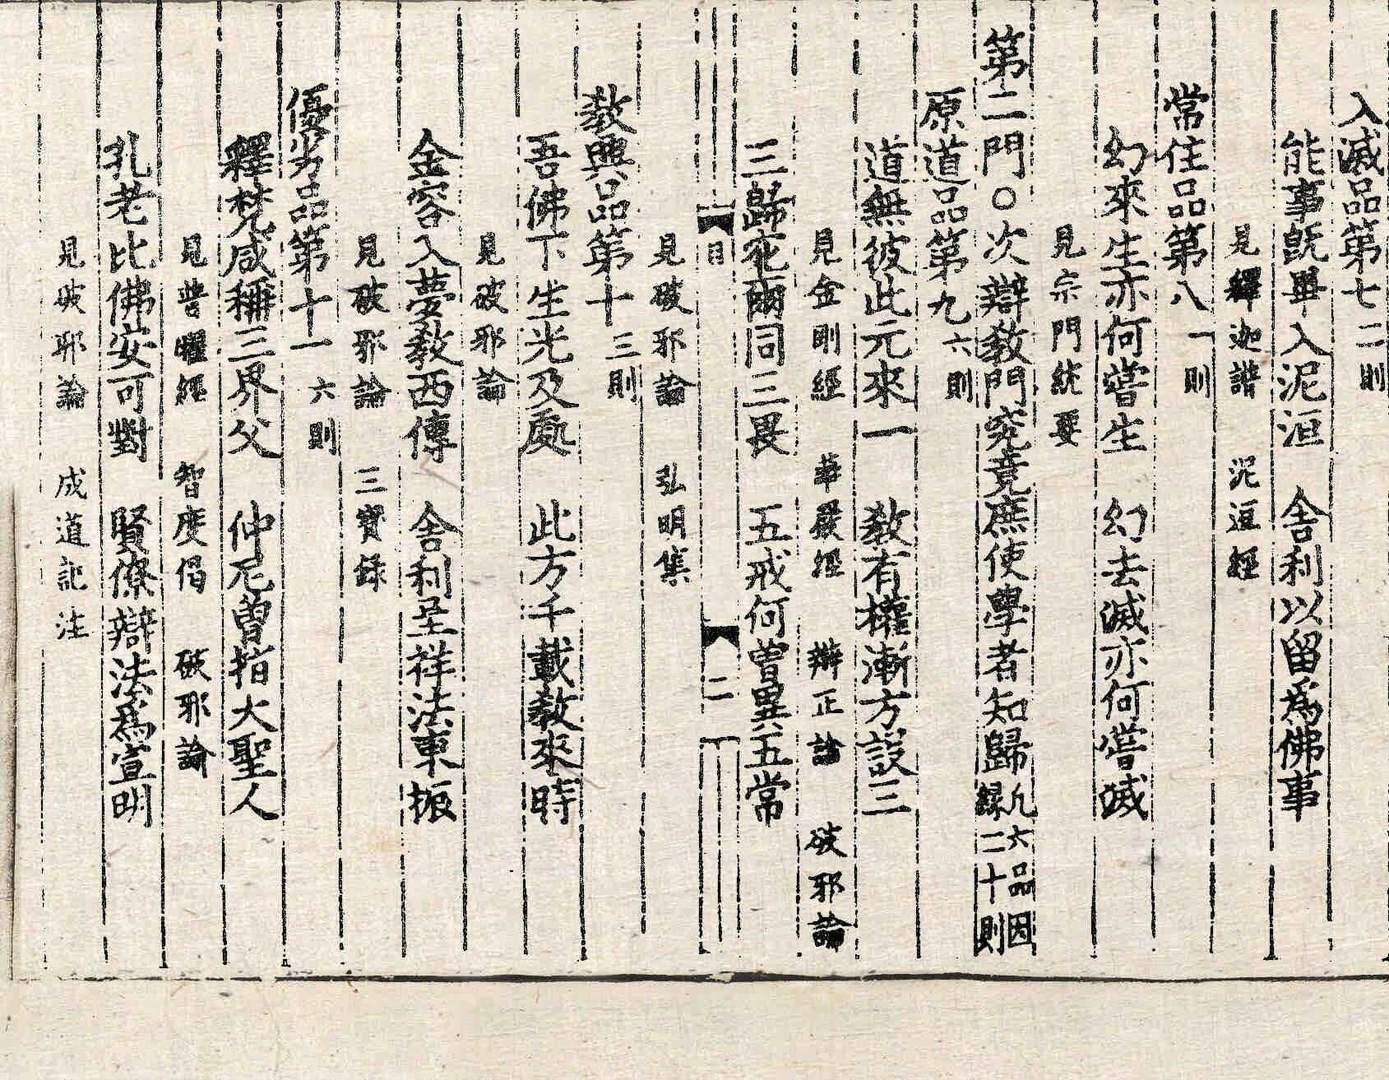 入滅品第七 二則
能事既畢入泥洹 舍利以留爲佛事
見釋迦譜 泥洹經
常住品第八 一則
幻來生亦何嘗生 幻去滅亦何嘗滅
見宗門統要
第二門○次辯教門究竟庶使學者知歸 凡六品因
録二十則
原道品第九 六則
道無彼此元來一 教有權漸方設三
見金剛經 華嚴經 辯正論 破邪論
三歸爾同三畏 五戒何曽異五常
目 二
見破邪論 弘明集
教興品第十 三則
吾佛下生光及處 此方千載教來時
見破邪論
金容入夢教西傳 舍利呈祥法東振
見破邪論 三寶録
優劣品第十一 六則
釋梵咸稱三界父 仲尼曽指大聖人
見普曜經 智度偈 破邪論
孔老比佛安可對 賢僚辯法爲宣明
見破邪論 成道記注